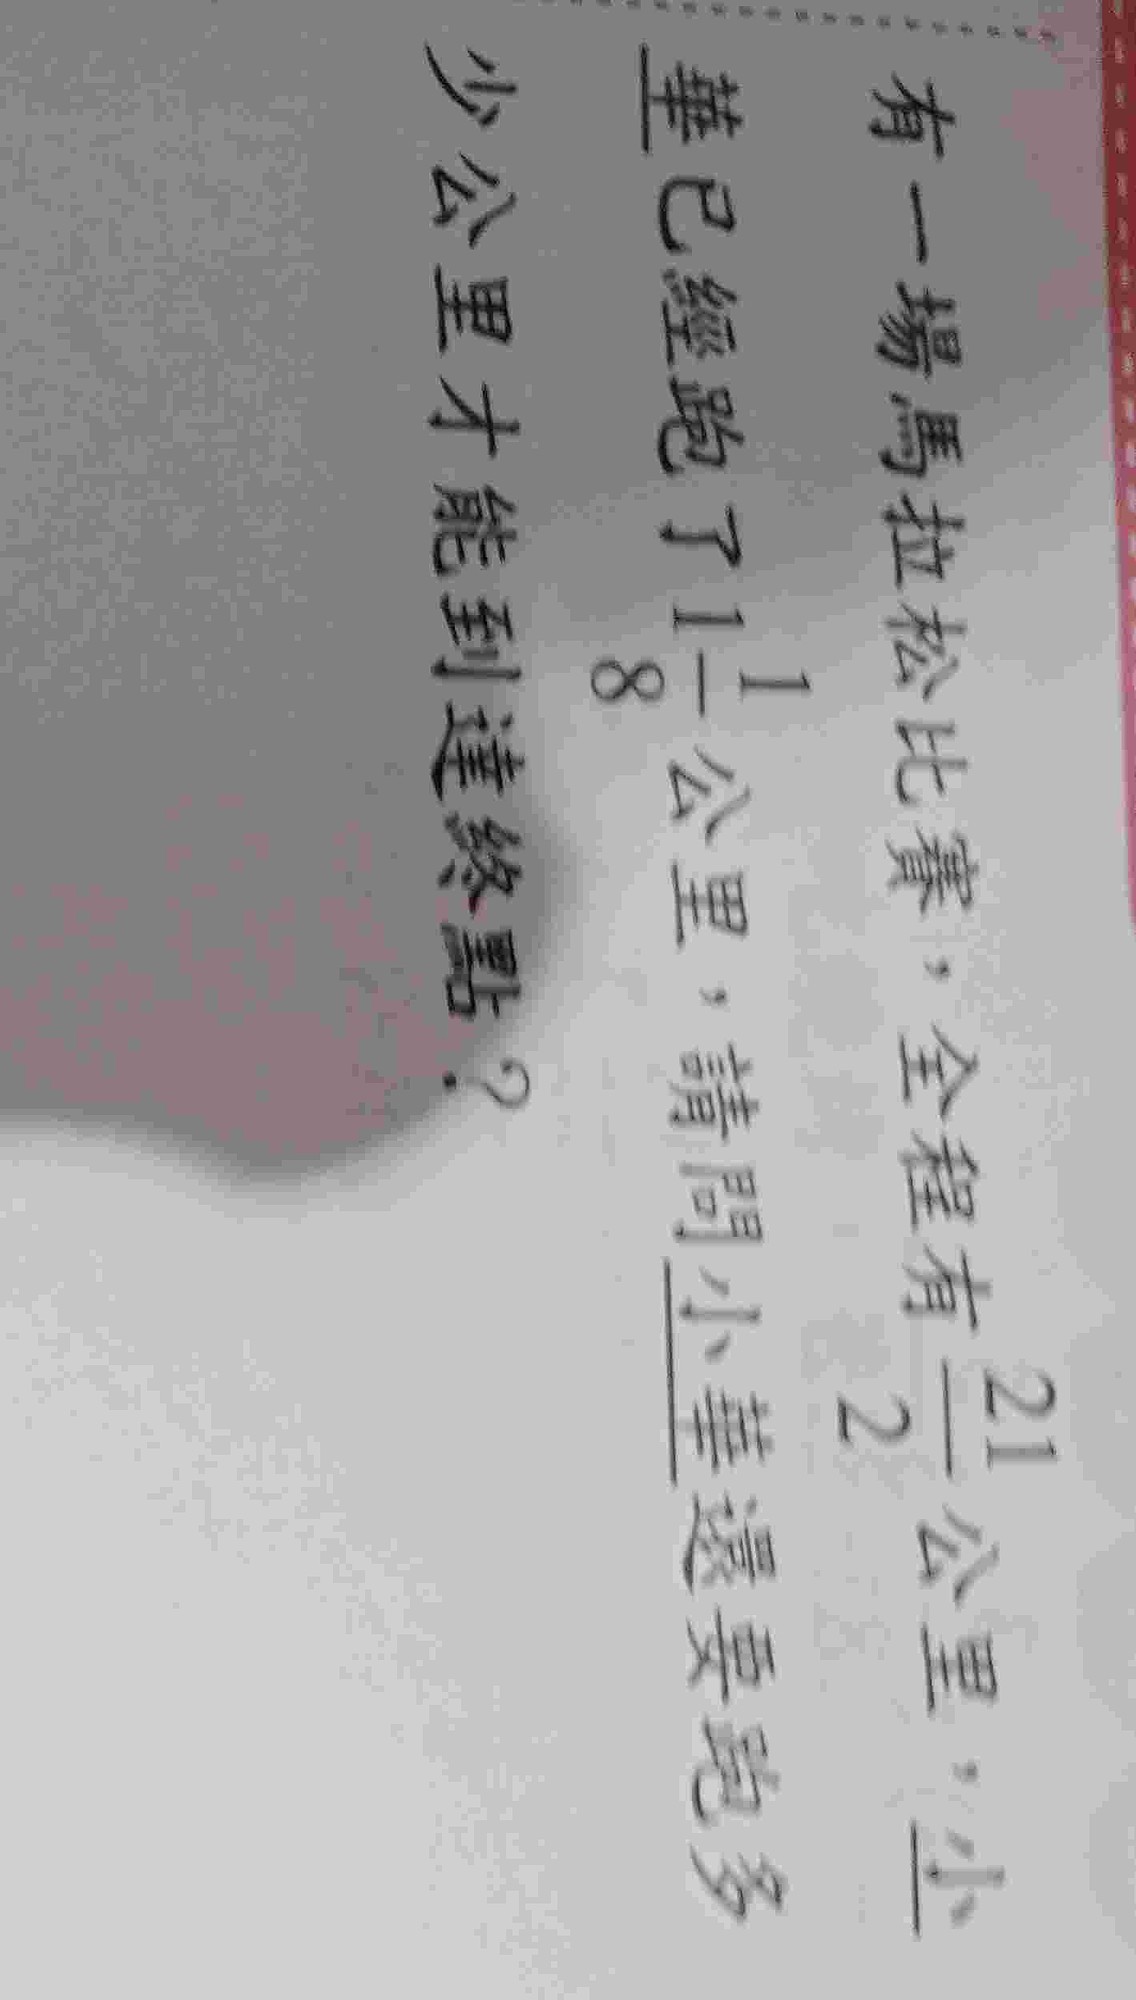 有一場馬拉松比賽，全程有21/2公里，小
華已經跑了1 1/8公里，請問小華還要跑多
少公里才能到達終點？